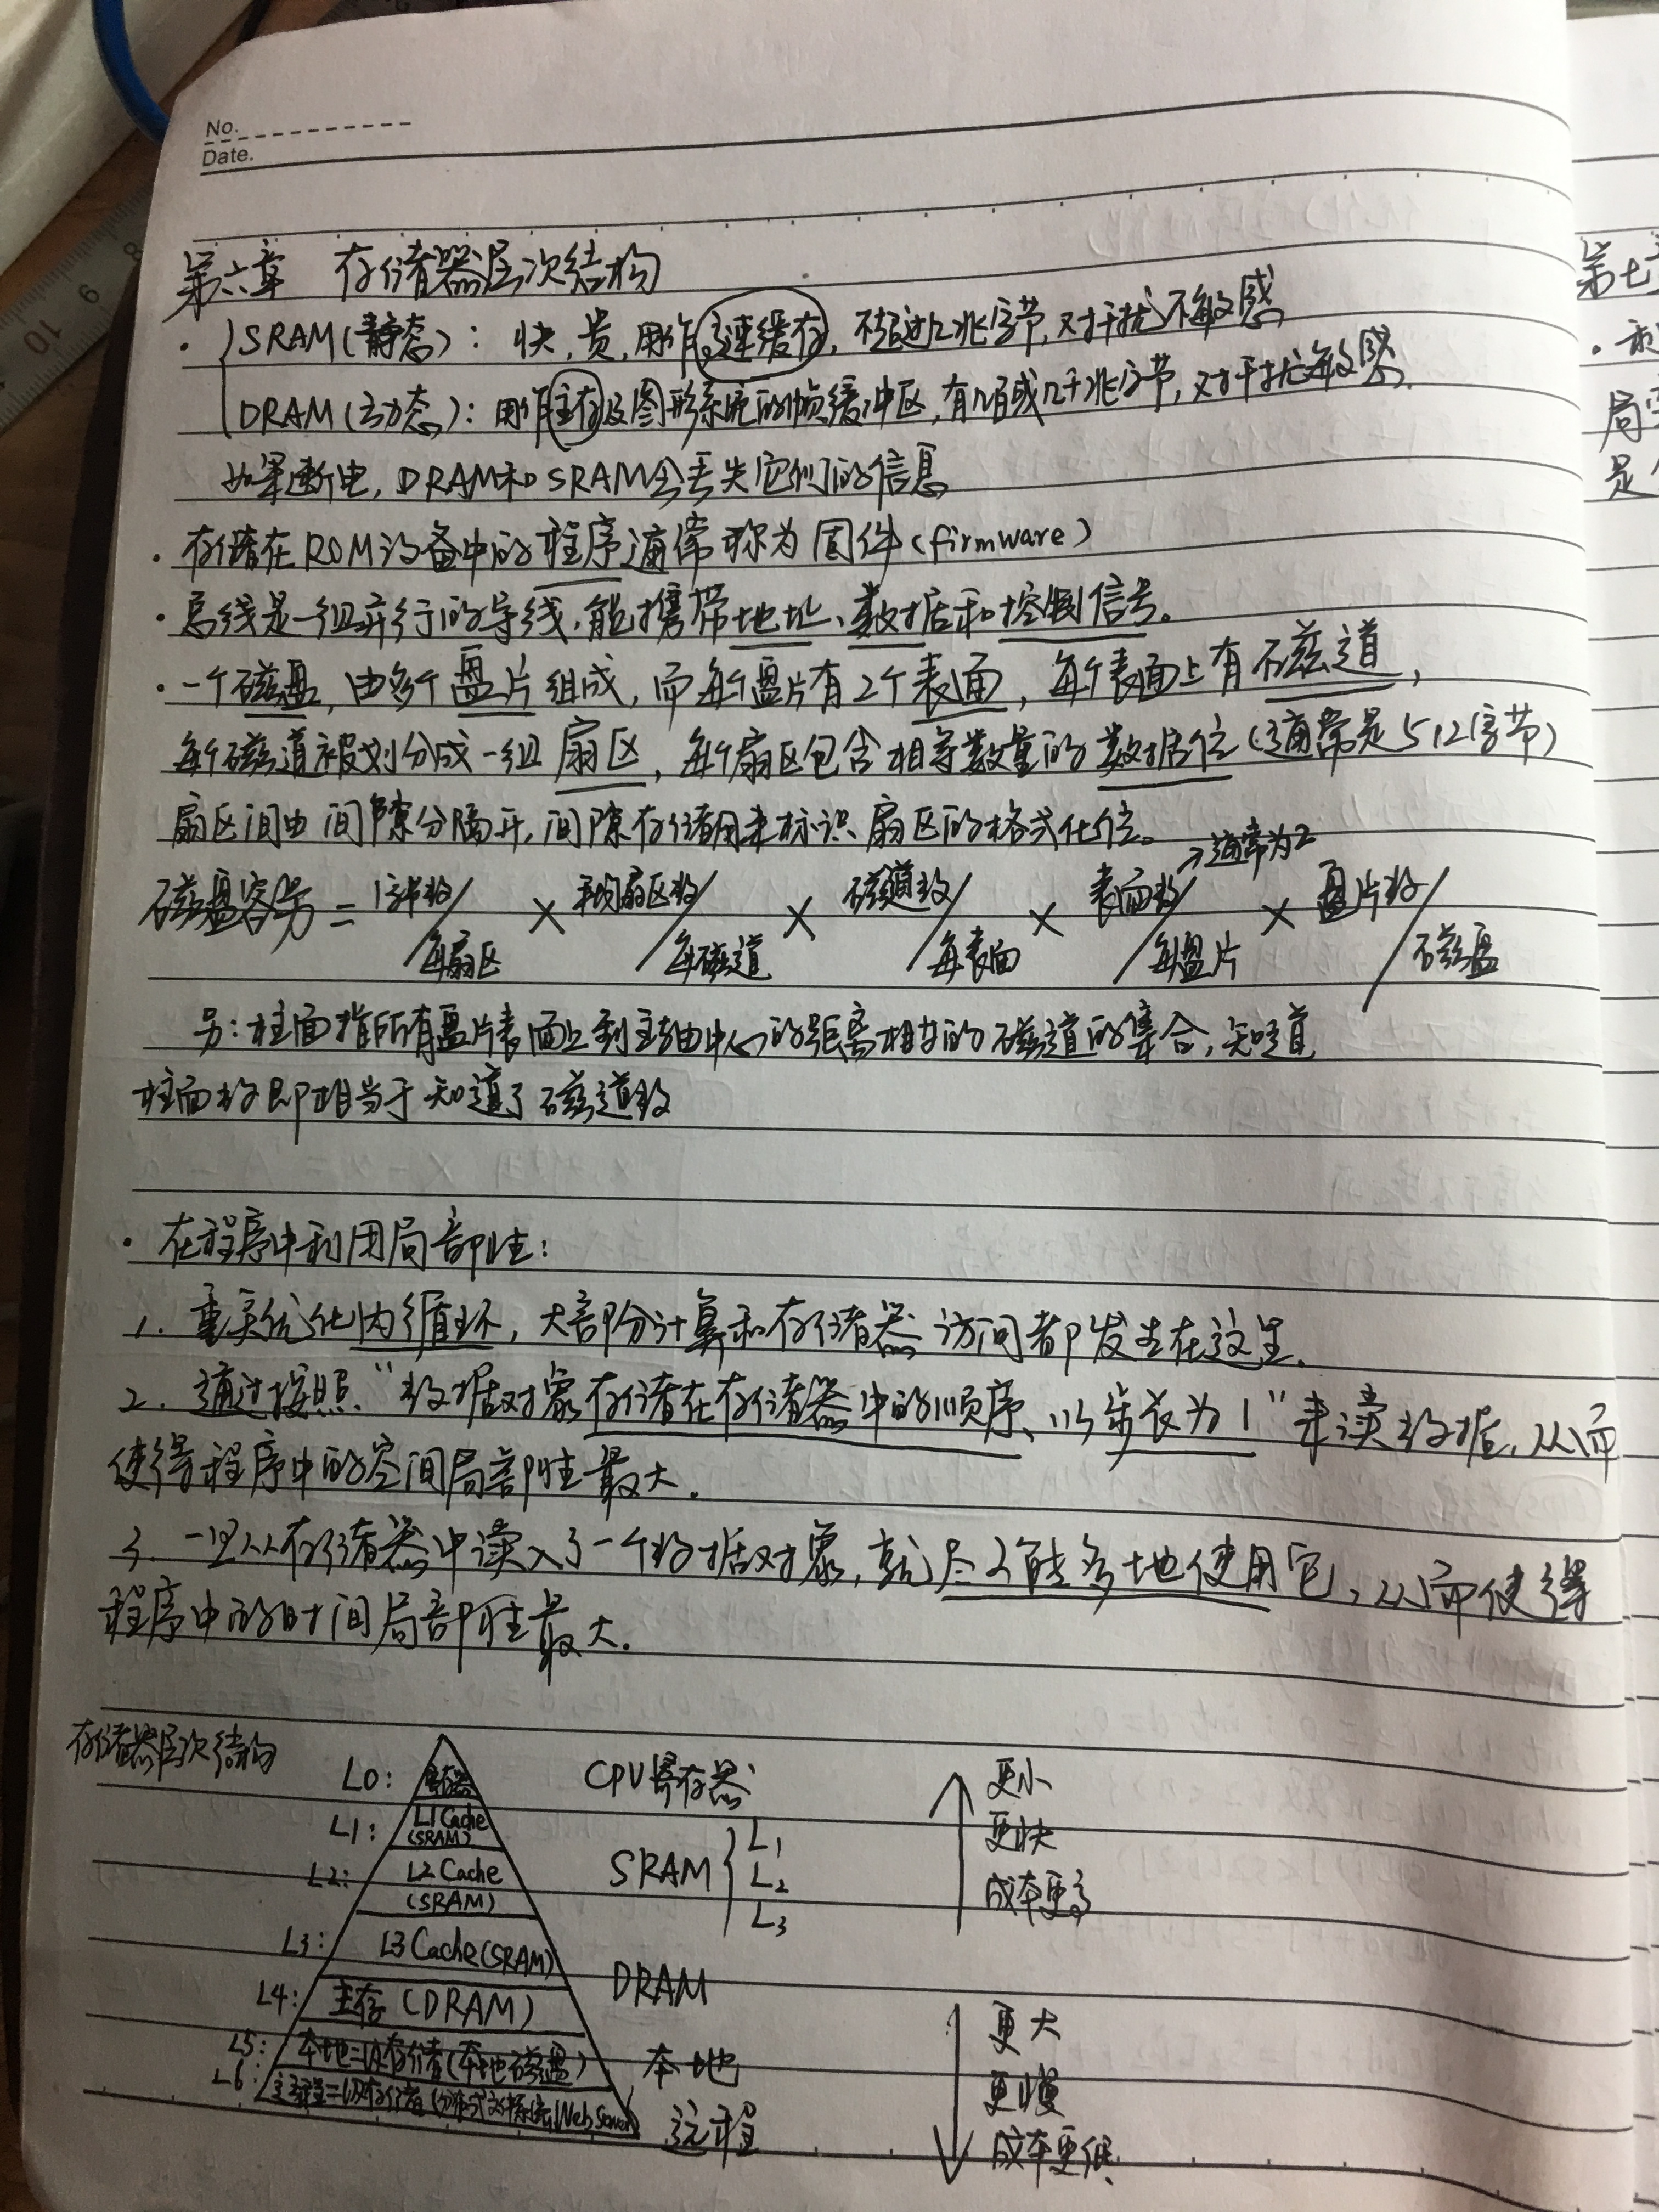 No.
Date.
第六章 存储器层次结构
· SRAM(静态): 快,贵,用作高速缓存,不超过几兆字节,对干扰不敏感
DRAM(动态): 用作主存及图形系统的帧缓冲区,有几百或几千兆字节,对干扰敏感.
如果断电,DRAM和SRAM会丢失它们的信息
· 存储在ROM设备中的程序通常称为固件(firmware)
· 总线是一组并行的导线,能携带地址、数据和控制信号。
· 一个磁盘,由多个盘片组成,而每个盘片有2个表面,每个表面上有磁道,
每个磁道被划分成一组扇区,每个扇区包含相等数量的数据位(通常是512字节)
扇区间由间隙分隔开,间隙存储用来标识扇区的格式化位。
→通常为2
磁盘容量 = 字节数/每扇区 × 平均扇区数/每磁道 × 磁道数/每表面 × 表面数/每盘片 × 盘片数/磁盘
另:柱面指所有盘片表面上到主轴中心的距离相等的磁道的集合,知道
柱面数即相当于知道了磁道数
· 在程序中利用局部性:
1. 重点优化内循环,大部分计算和存储器访问都发生在这里.
2. 通过按照“数据对象存储在存储器中的顺序、以步长为1”来读数据,从而
使得程序中的空间局部性最大.
3. 一旦从存储器中读入了一个数据对象,就尽可能多地使用它,从而使得
程序中的时间局部性最大.
存储器层次结构
L0: 寄存器 CPU寄存器 更小
L1: L1 Cache (SRAM) 更快
L2: L2 Cache (SRAM) SRAM { L1 L2 L3 成本更高
L3: L3 Cache(SRAM)
L4: 主存(DRAM) DRAM
L5: 本地二级存储(本地磁盘) 本地 更大
L6: 远程二级存储(分布式文件系统,Web Server) 远程 更慢
成本更低
第七章
局
是